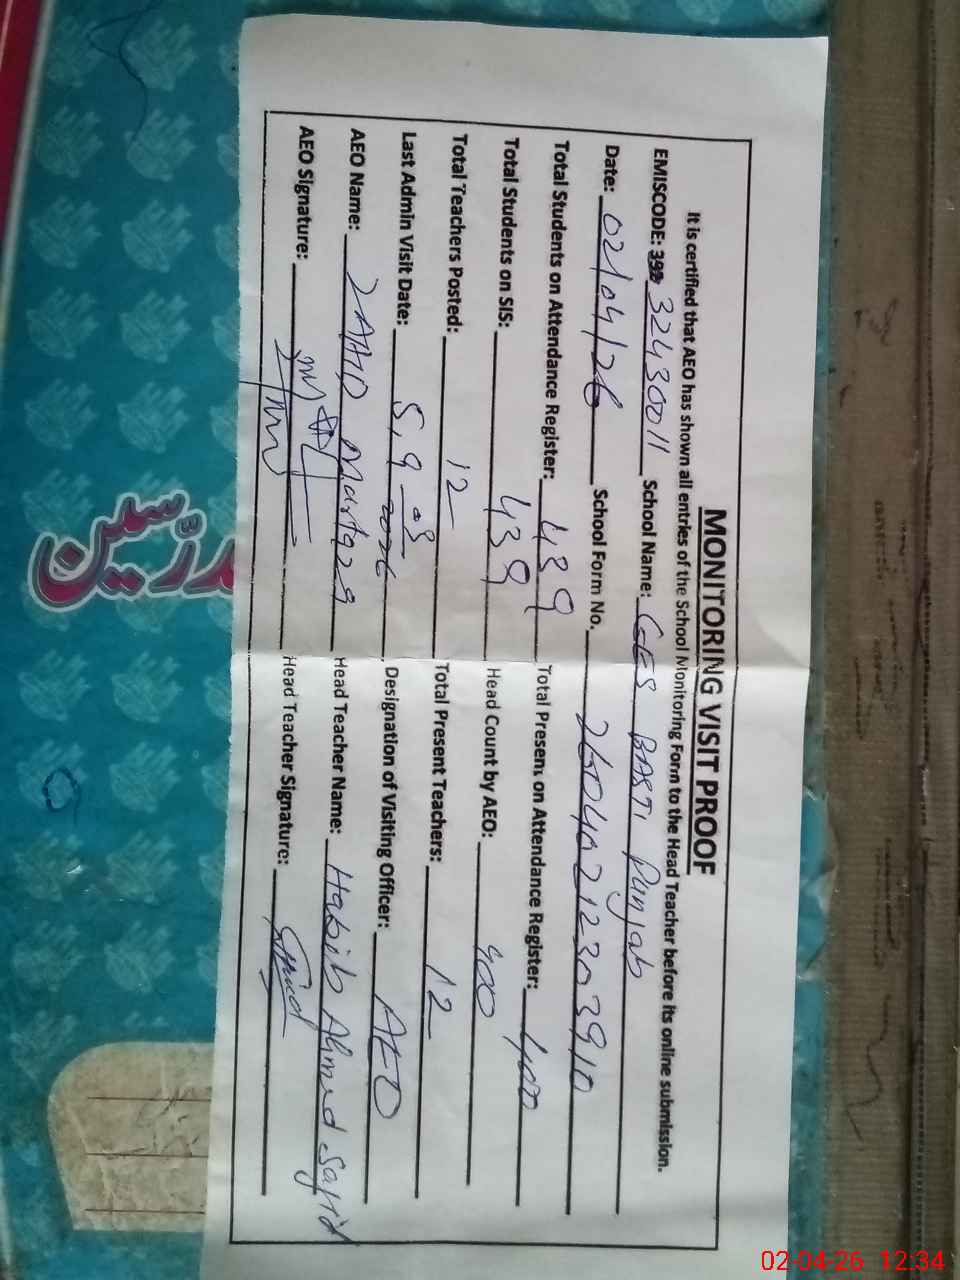 MONITORING VISIT PROOF
It is certified that AEO has shown all entries of the School Monitoring Form to the Head Teacher before its online submission.
EMISCODE: 32430011 School Name: GES BASTI Punjab
Date: 02/04/26 School Form No. 26040212303910
Total Students on Attendance Register: 439 Total Present on Attendance Register: 400
Total Students on SIS: 439 Head Count by AEO: 400
Total Teachers Posted: 12 Total Present Teachers: 12
Last Admin Visit Date: 2026 Designation of Visiting Officer: AEO
AEO Name: ZAHID Head Teacher Name: Habib Ahmed Sajid
AEO Signature: Head Teacher Signature:
مدرسین
02-04-26 12:34